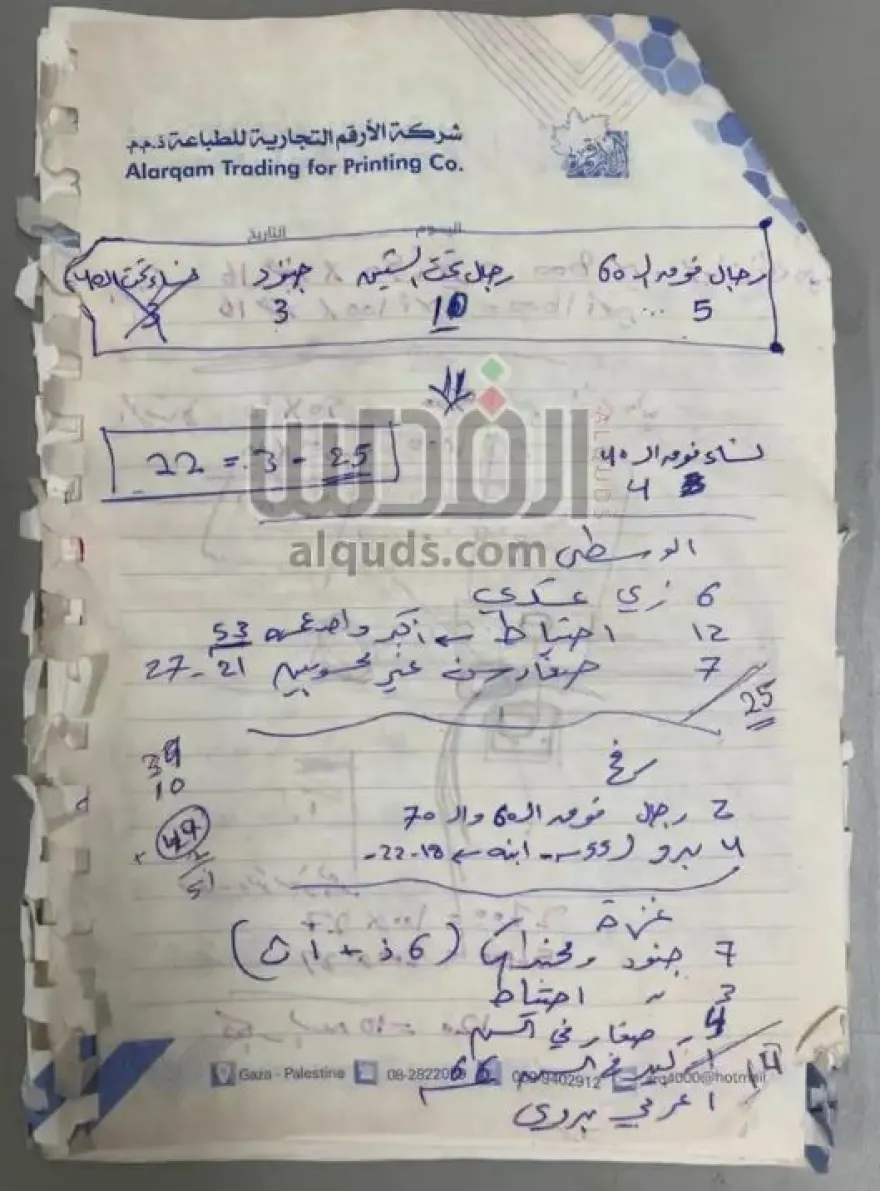 شركة الأرقم التجارية للطباعة ذ.م.م
Alarqam Trading for Printing Co.
اليوم التاريخ
رجال فوق الـ 60 رجال تحت الستين جنود نساء تحت الـ 40
5 10 3 3
القدس
ALQUDS
نساء فوق الـ 40
4
25 - 3 = 22
alquds.com
الوسطى
6 زي عسكري
12 احتياط ← أكبر واحد عمره 53
7 صغار سن غير محسوبين 21 - 27
25
رفح
39
10
49
2
51
2 رجال فوق الـ 60 والـ 70
4 بدو (55 - ابنه ← 18 - 22 -
غزة
7 جنود ومجندات (6 ذ + 1 ث)
3 " احتياط
4 صغار في السن
1 كبير في السن 66
1 عربي بدوي
14
Gaza - Palestine 08-2822 9402912 @hotmail